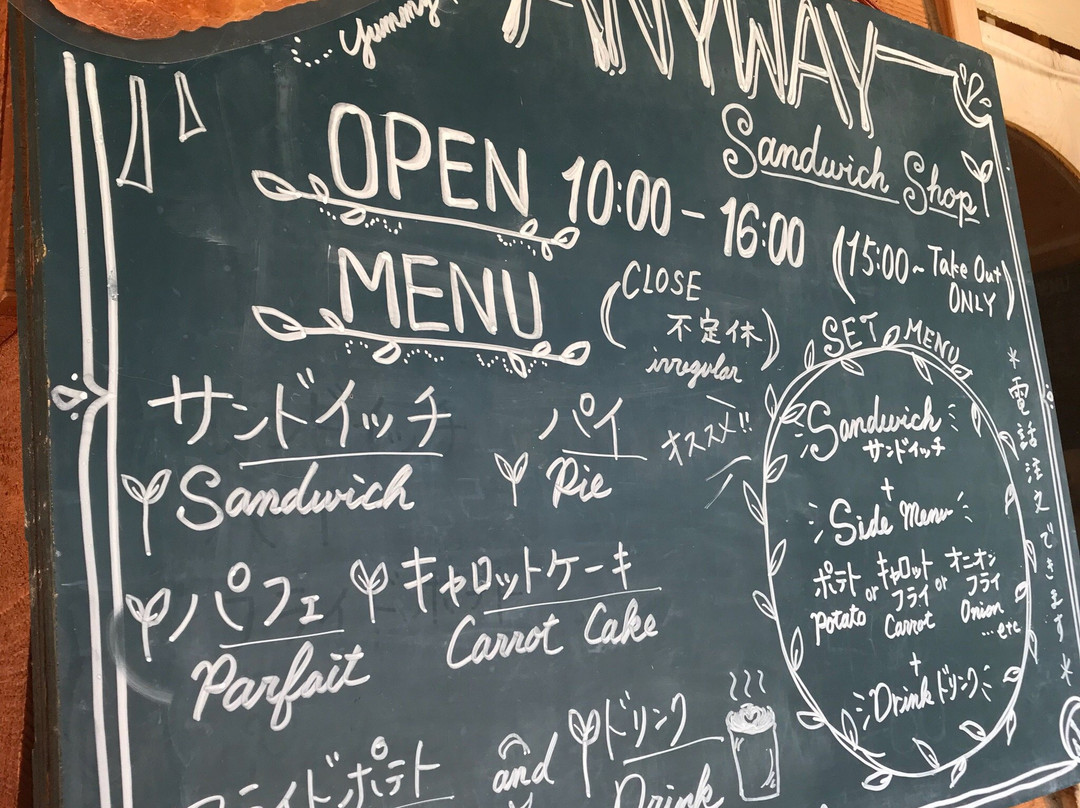 Yummy
ANYWAY
Sandwich Shop
OPEN 10:00 - 16:00
(15:00~ Take Out
ONLY)
MENU
(CLOSE
不定休
irregular)
サンドイッチ
Sandwich
パイ
Pie
オススメ!!
パフェ
Parfait
キャロットケーキ
Carrot Cake
フライドポテト
and
ドリンク
Drink
SET MENU
Sandwich
サンドイッチ
+
Side Menu
ポテト or キャロットフライ or オニオンフライ
Potato Carrot Onion
...etc
+
Drink ドリンク
*電話注文できます*